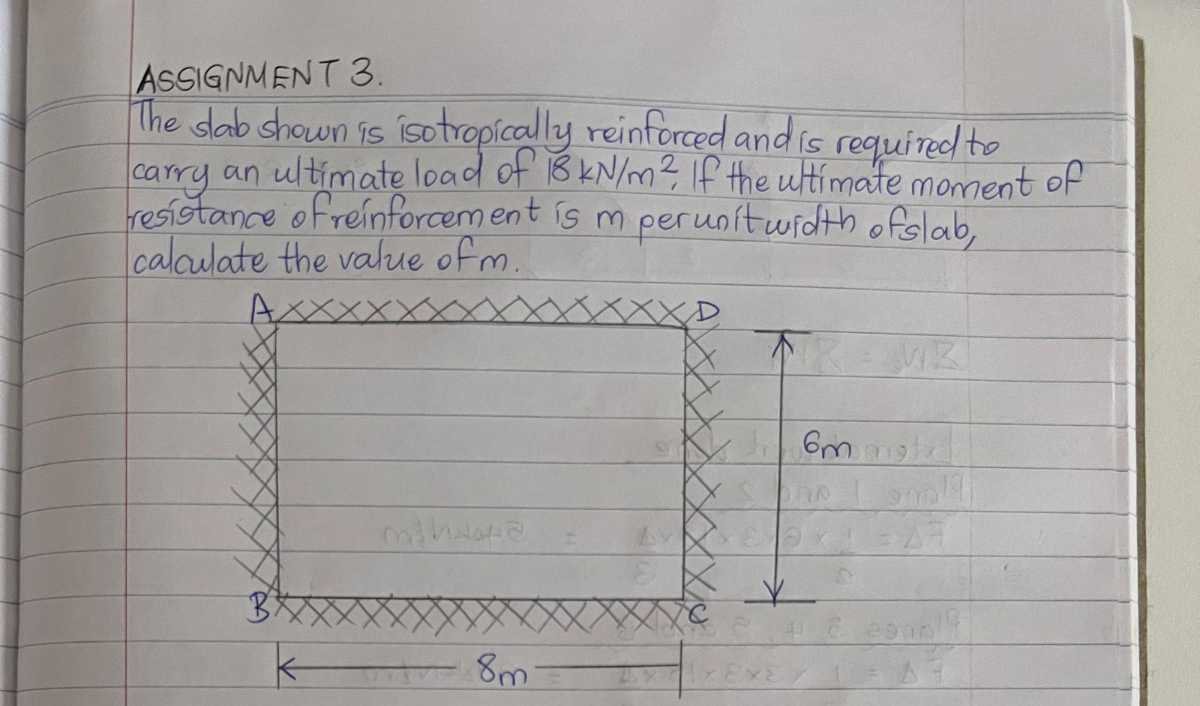 ASSIGNMENT 3.
The slab shown is isotropically reinforced and is required to
carry an ultimate load of 18 kN/m². If the ultimate moment of
resistance of reinforcement is m per unit width of slab,
calculate the value of m.
A D
6m
B C
8m